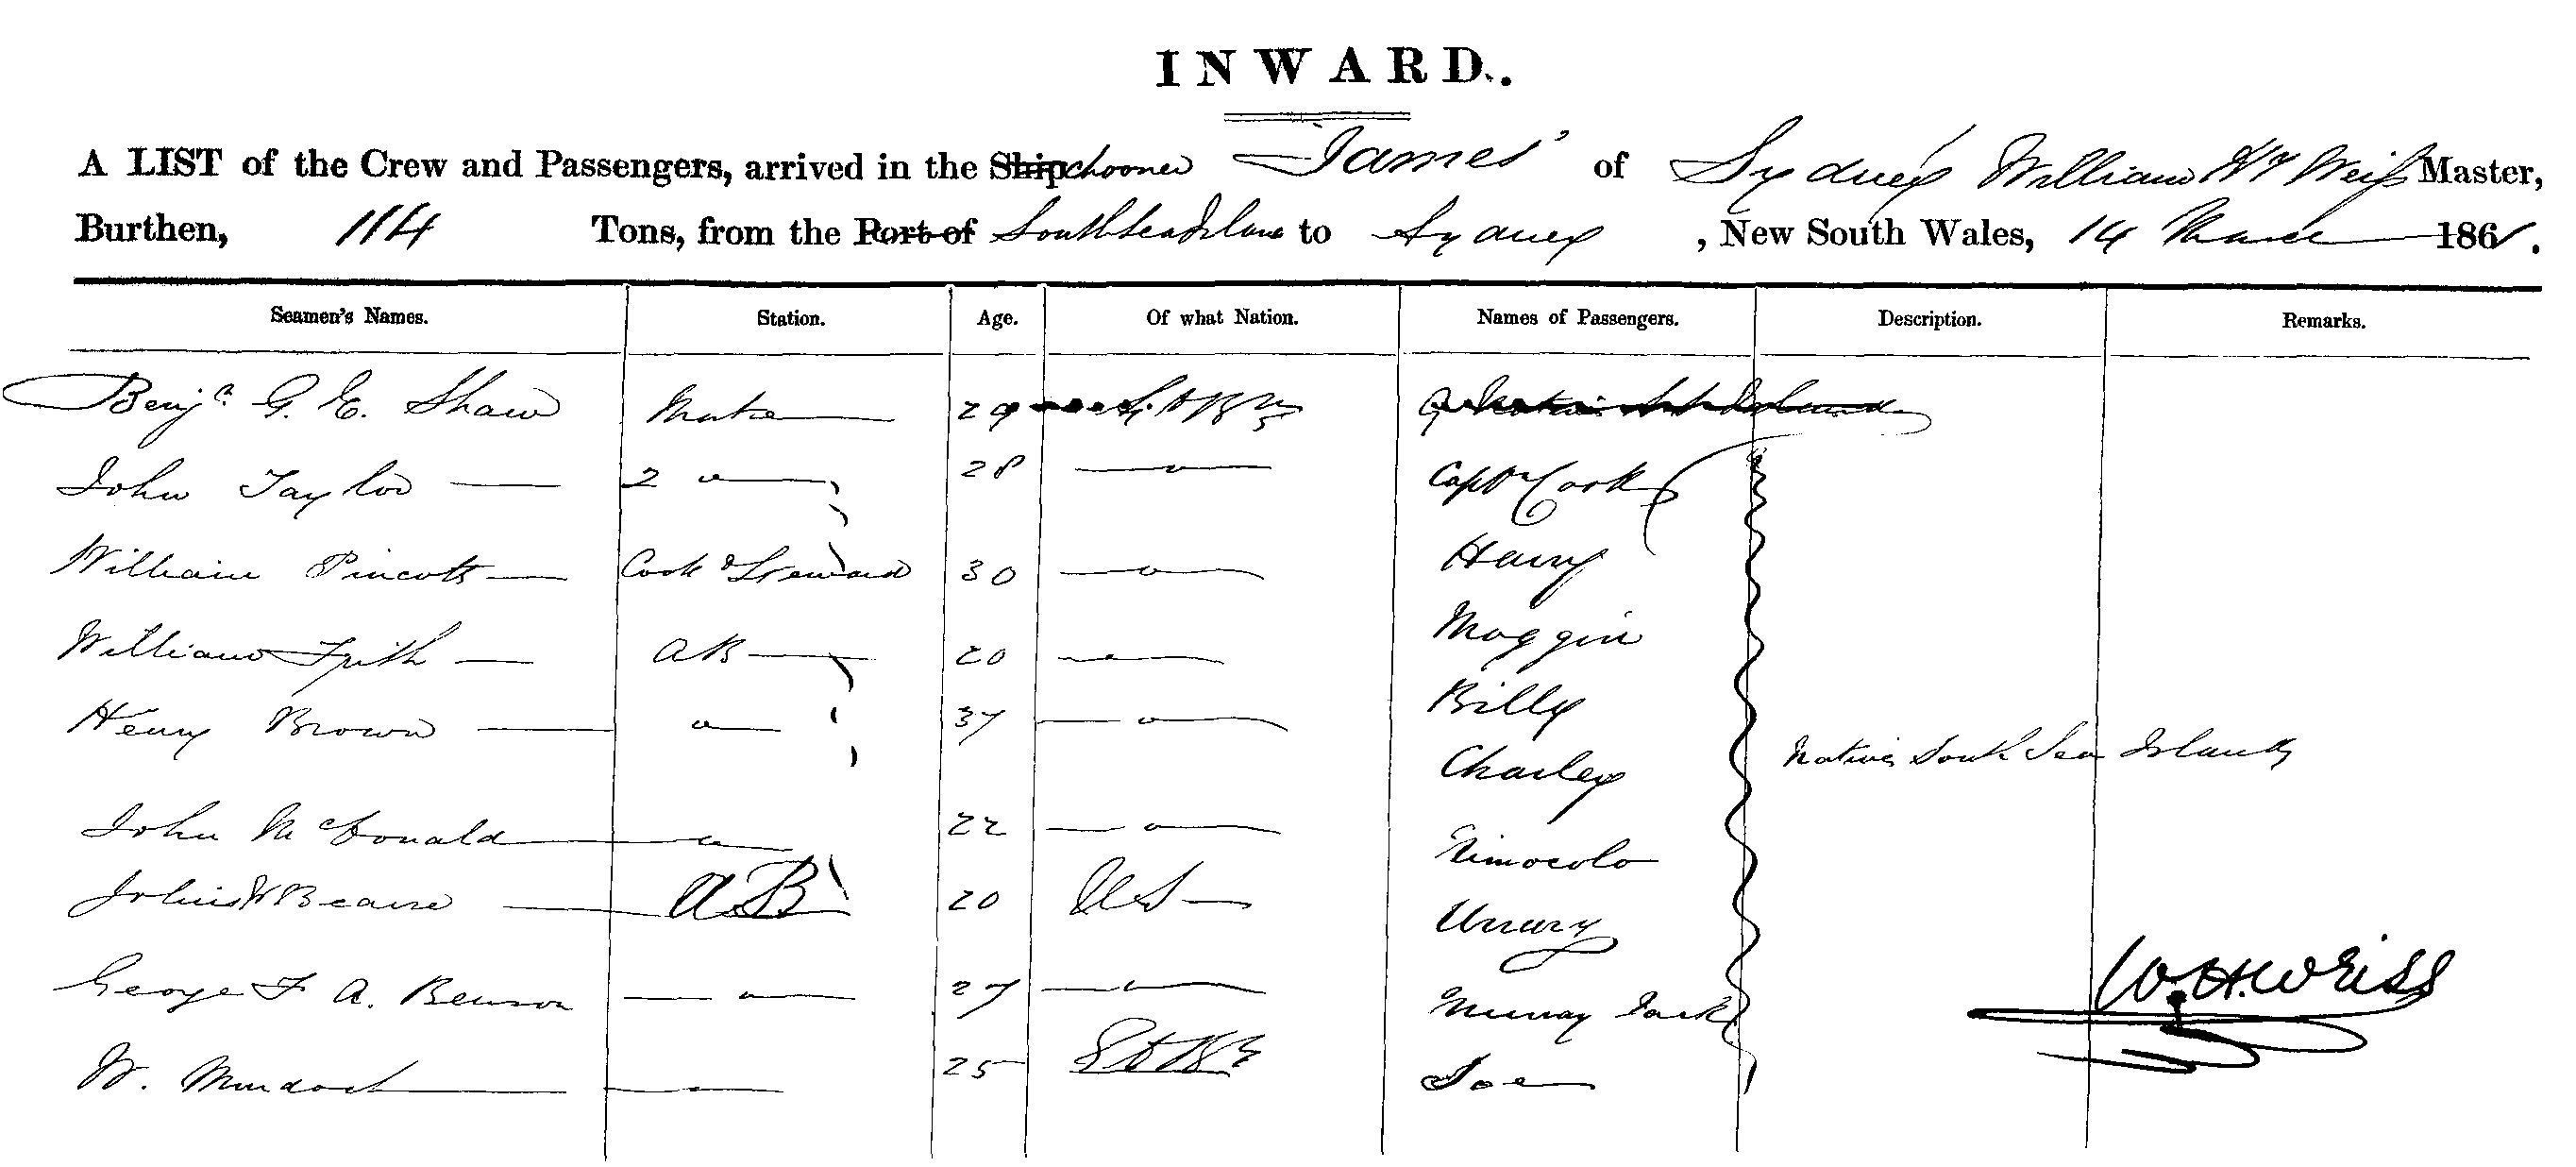 INWARD.
A LIST of the Crew and Passengers, arrived in the Schooner James of Sydney William Hy Weiss Master,
Burthen, 114 Tons, from the Port of South Sea Islans to Sydney, New South Wales, 14 March 1861.
Seamen's Names. Station. Age. Of what Nation. Names of Passengers. Description. Remarks.
Benjn G. E. Shaw Mate 29
John Taylor 2 " 28 " Captn Cook
William Pincott Cook & Steward 30 " Harry
William Frith AB 20 " Moggin
Henry Brown " 37 " Billy
Charley Natives South Sea Islands
John McDonald " 22 " Nimocolo
W Bearse AB 20 US Unury
George F A. Benson " 27 " Murray Jack
W. Murdoch " 25 Joe
W. H. Weiss